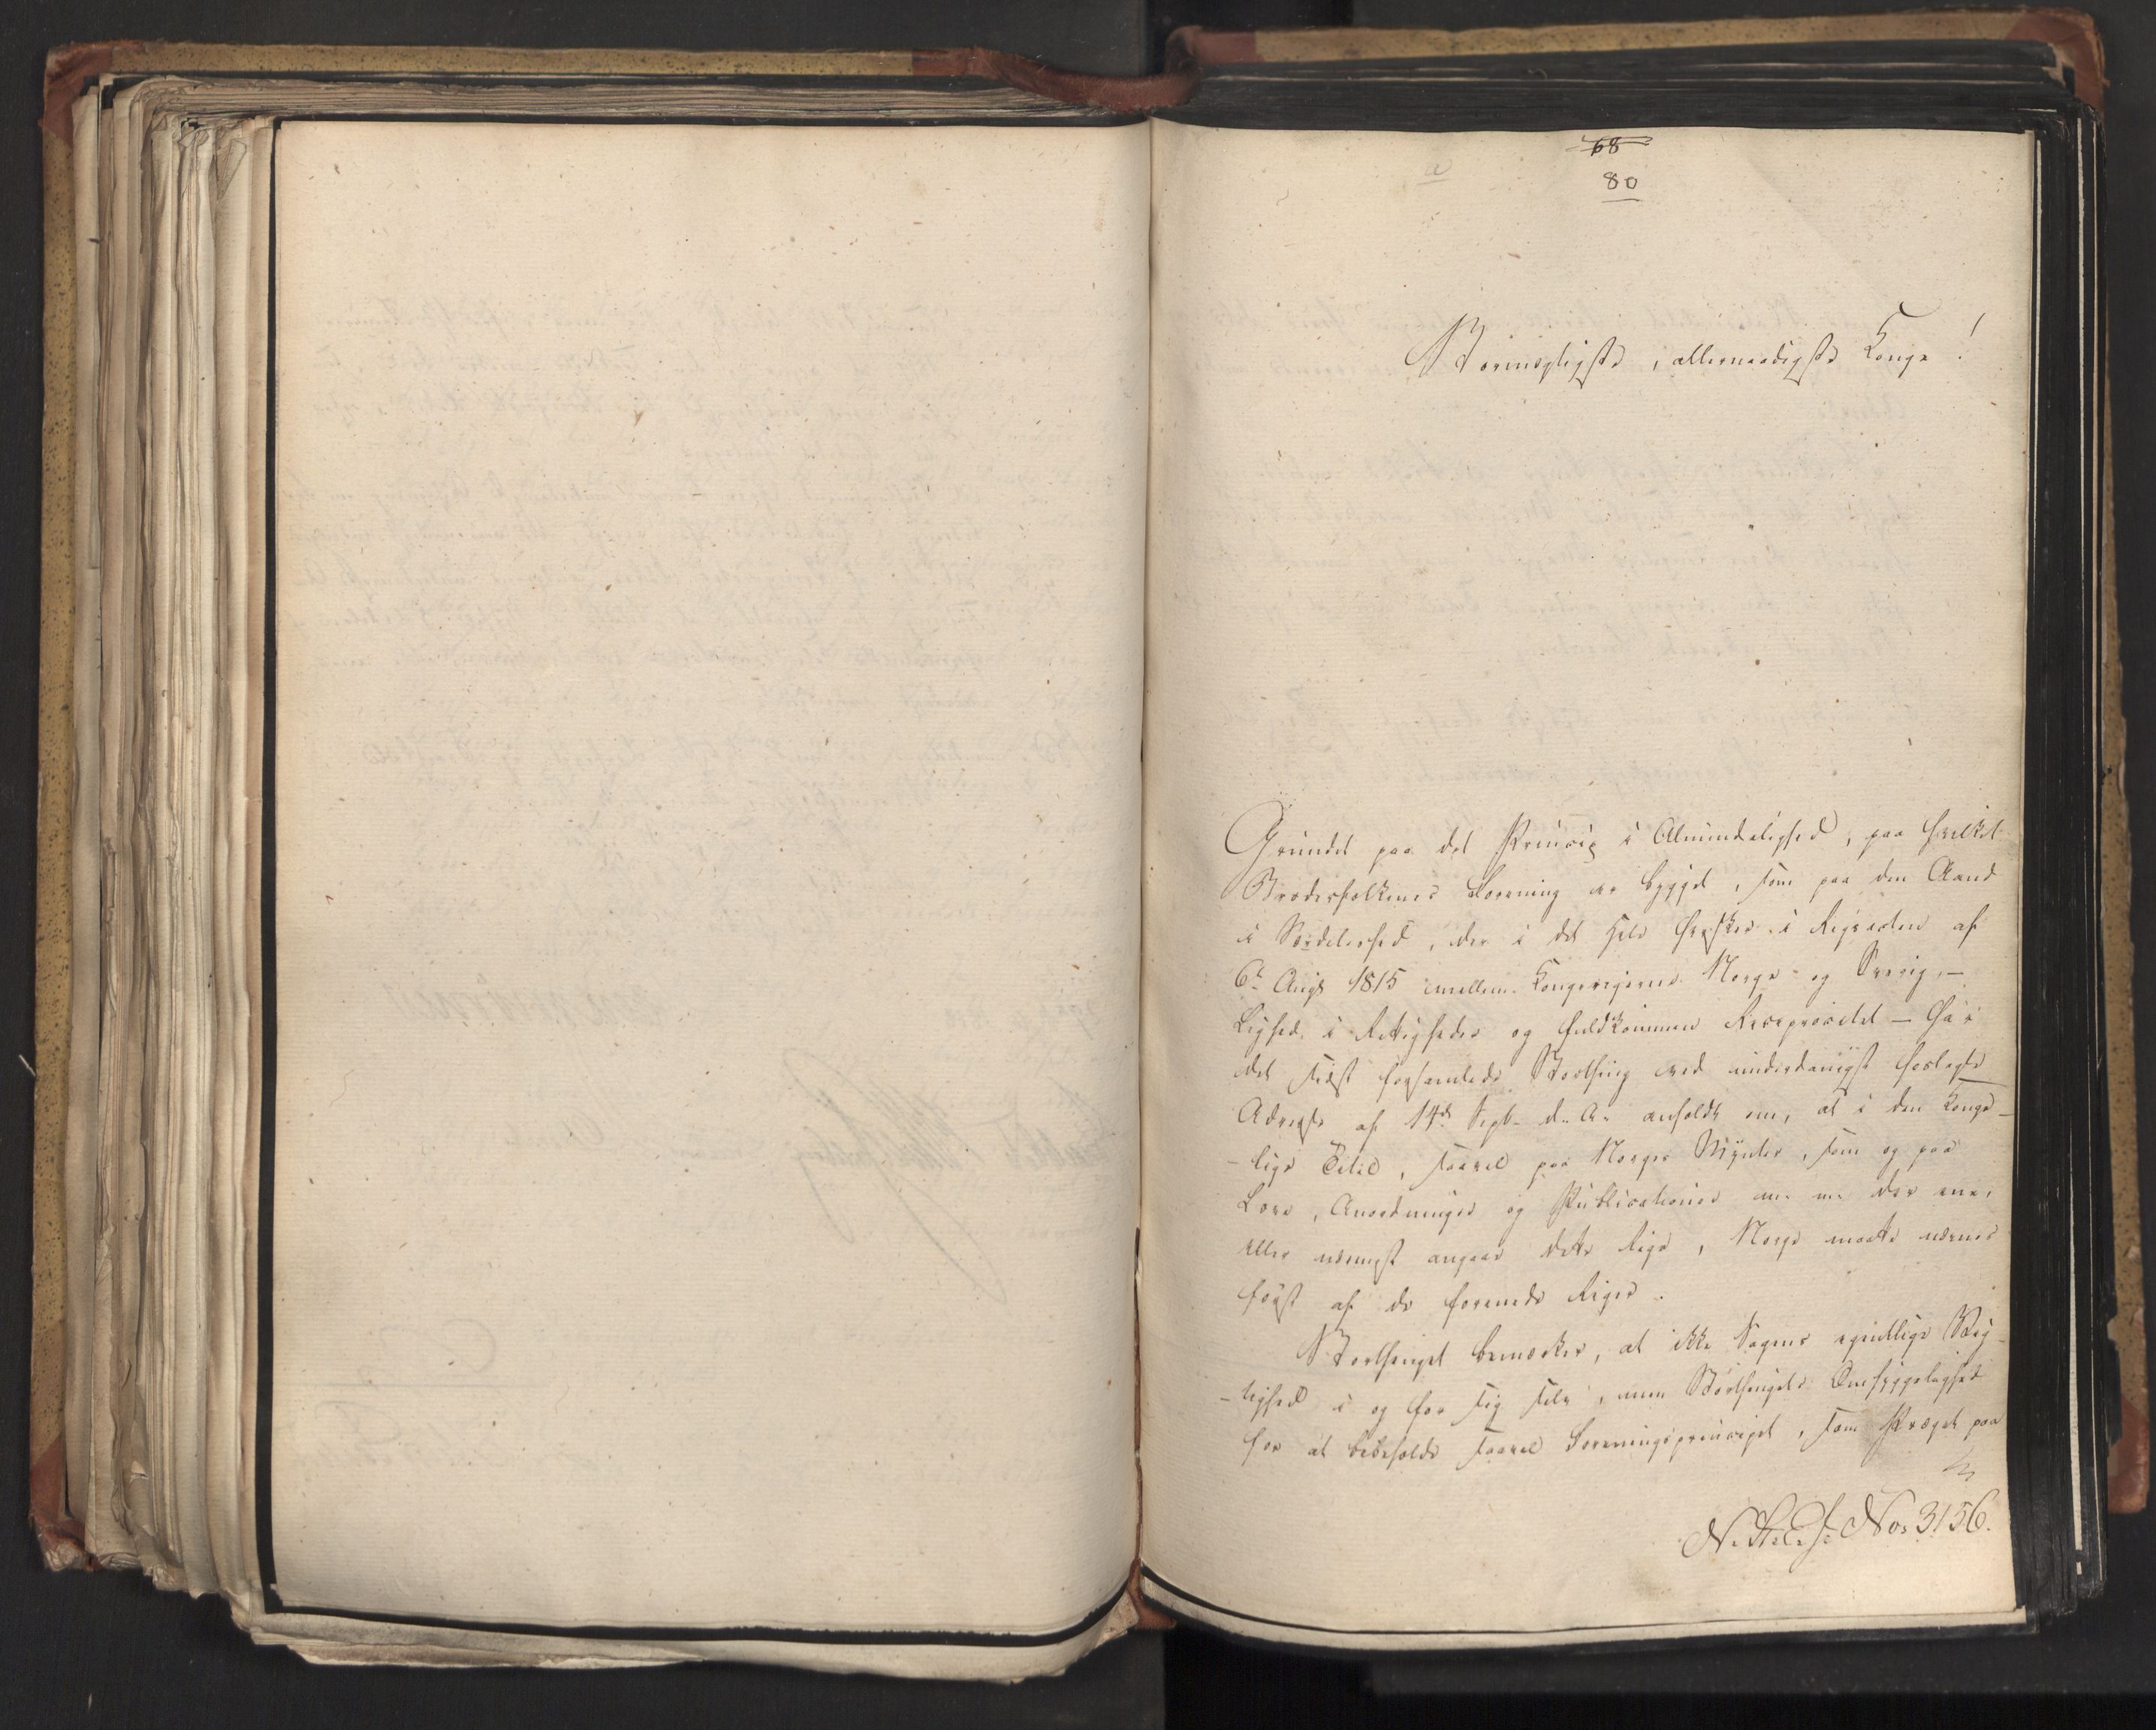 68
80
a
Stormægtigste, allernaadigste Konge!
Grundet paa det Princip i Almindelighed, paa hvilket
Broderfolkenes Forening er bygget, som paa den Aand
i Særdeleshed, der i det Hele hersker i Rigsacten af
6te Augt 1815 imellem Kongerigerne Norge og Sverig, —
Lighed i Rettigheder og fuldkommen Reciprocitet — har
det sidst forsamlede Storthing ved underdanigst
Adresse af 14de Sept. d. A. anholdt om, at i den Konge-
-lige Titel, saavel paa Norges Mynter, som og paa
Love, Anordninger og Publicationer m. m. der ene,
eller nærmest angaae dette Rige, Norge maatte nævnes
først af de forenede Riger.
Storthinget bemærker, at ikke Sagens egentlige Vig-
-tighed i og for sig selv, men Storthingets Omhyggelighed
for at bibeholde saavel Foreningsprincipet, som Præget paa
N. St. E. f. No. 3156.